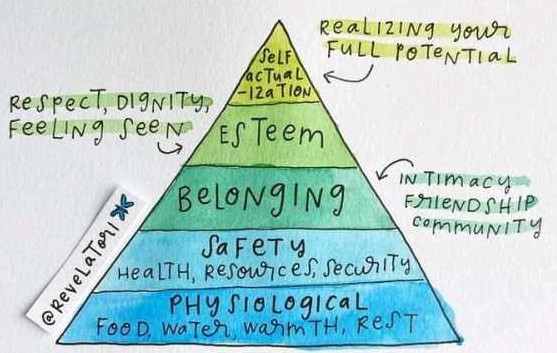 REALIZING YOUR
FULL POTENTIAL
SELF
ACTUAL
-IZATION
RESPECT, DIGNITY,
FEELING SEEN
ESTEEM
BELONGING
INTIMACY
FRIENDSHIP
COMMUNITY
SAFETY
HEALTH, RESOURCES, SECURITY
PHYSIOLOGICAL
FOOD, WATER, WARMTH, REST
@REVELATORI